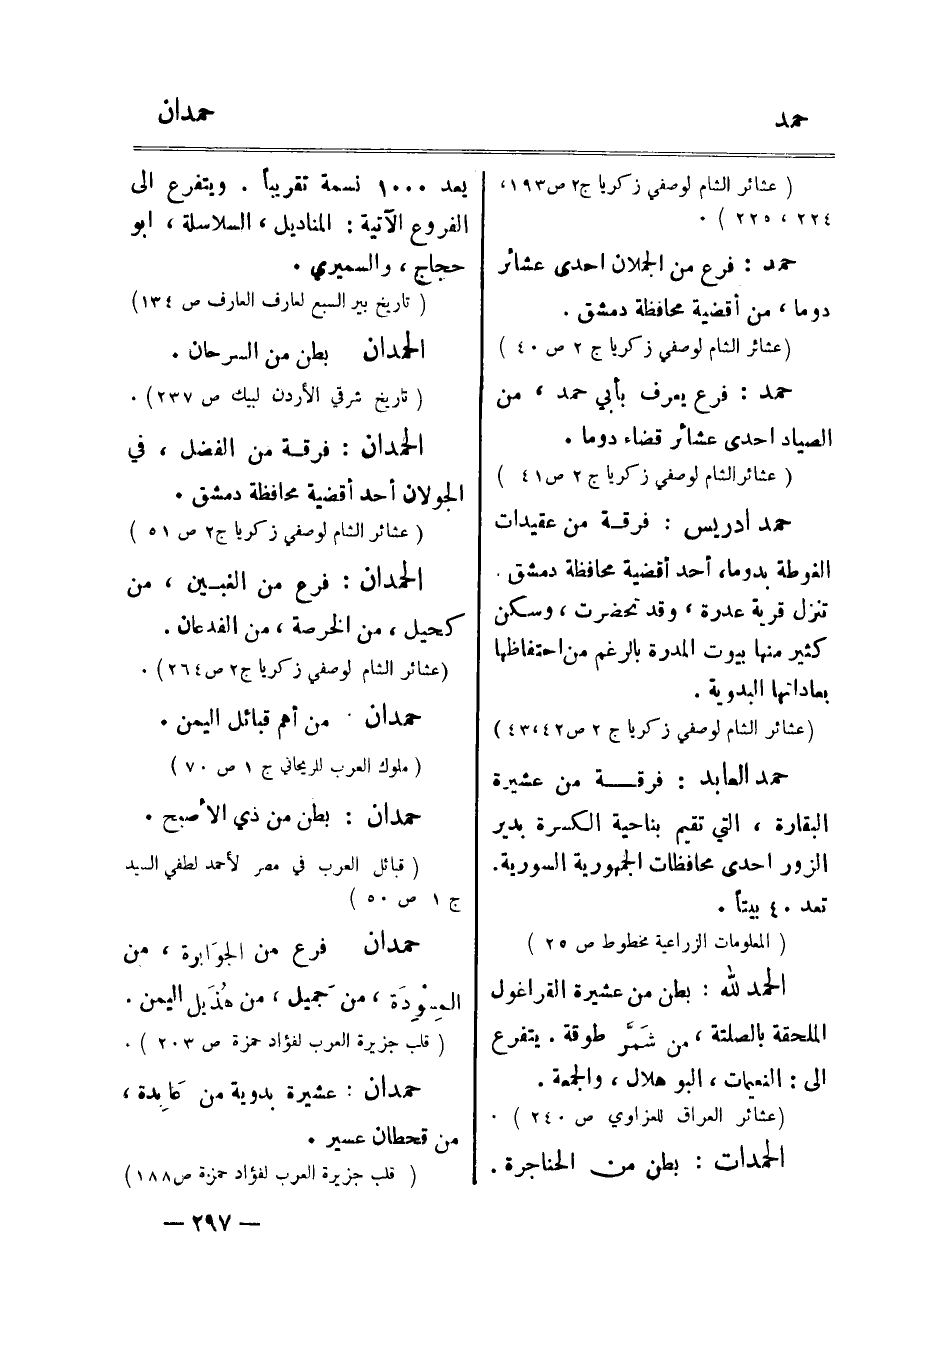 حمد
حمدان
( عشائر الشام لوصفي زكريا ج٢ ص١٩٣،
٢٢٤ ، ٢٢٥ ) .
حمد : فرع من الجملان احدى عشائر
دوما ، من أقضية محافظة دمشق .
(عشائر الشام لوصفي زكريا ج ٢ ص ٤٠ )
حمد : فرع يعرف بأبي حمد ، من
الصياد احدى عشائر قضاء دوما .
( عشائرالشام لوصفي زكريا ج ٢ ص٤١ )
حمد أدريس : فرقة من عقيدات
الغوطة بدوما، أحد أقضية محافظة دمشق .
تنزل قرية عدرة ، وقد تحضرت ، وسكن
كثير منها بيوت المدرة بالرغم من احتفاظها
بعاداتها البدوية .
(عشائر الشام لوصفي زكريا ج ٢ ص٤٢،٤٣ )
حمد العابد : فرقة من عشيرة
البقارة ، التي تقيم بناحية الكسرة بدير
الزور احدى محافظات الجمهورية السورية.
تعد ٤٠ بيتاً .
( المعلومات الزراعية مخطوط ص ٢٥ )
الحمد لله : بطن من عشيرة القراغول
الملحقة بالصلتة ، من شَمَّر طوقة . يتفرع
الى : النعيمات ، البو هلال ، والجمعة .
(عشائر العراق للعزاوي ص ٢٤٠ ) .
الحمدات : بطن من الحناجرة .
يعد ١٠٠٠ نسمة تقريباً . ويتفرع الى
الفروع الآتية : المناديل ، السلاسلة ، ابو
حجاج ، والسميري .
( تاريخ بير السبع لعارف العارف ص ١٣٤)
الحمدان بطن من السرحان .
( تاريخ شرقي الأردن لبيك ص ٢٣٧) .
الحمدان : فرقة من الفضل ، في
الجولان أحد أقضية محافظة دمشق .
( عشائر الشام لوصفي زكريا ج٢ ص ٥١ )
الحمدان : فرع من الغبين ، من
كحيل ، من الخرصة ، من الفدعان .
(عشائر الشام لوصفي زكريا ج٢ ص٢٦٤) .
حمدان من أهم قبائل اليمن .
( ملوك العرب للريحاني ج ١ ص ٧٠ )
حمدان : بطن من ذي الأصبح .
( قبائل العرب في مصر لأحمد لطفي السيد
ج ١ ص ٥٠ )
حمدان فرع من الجوابرة ، من
المِسْوِدَة ، من جميل ، من هُذَيل اليمن .
( قلب جزيرة العرب لفؤاد حمزة ص ٢٠٣ ) .
حمدان : عشيرة بدوية من عَابِدة ،
من قحطان عسير .
( قلب جزيرة العرب لفؤاد حمزة ص١٨٨)
— ٢٩٧ —